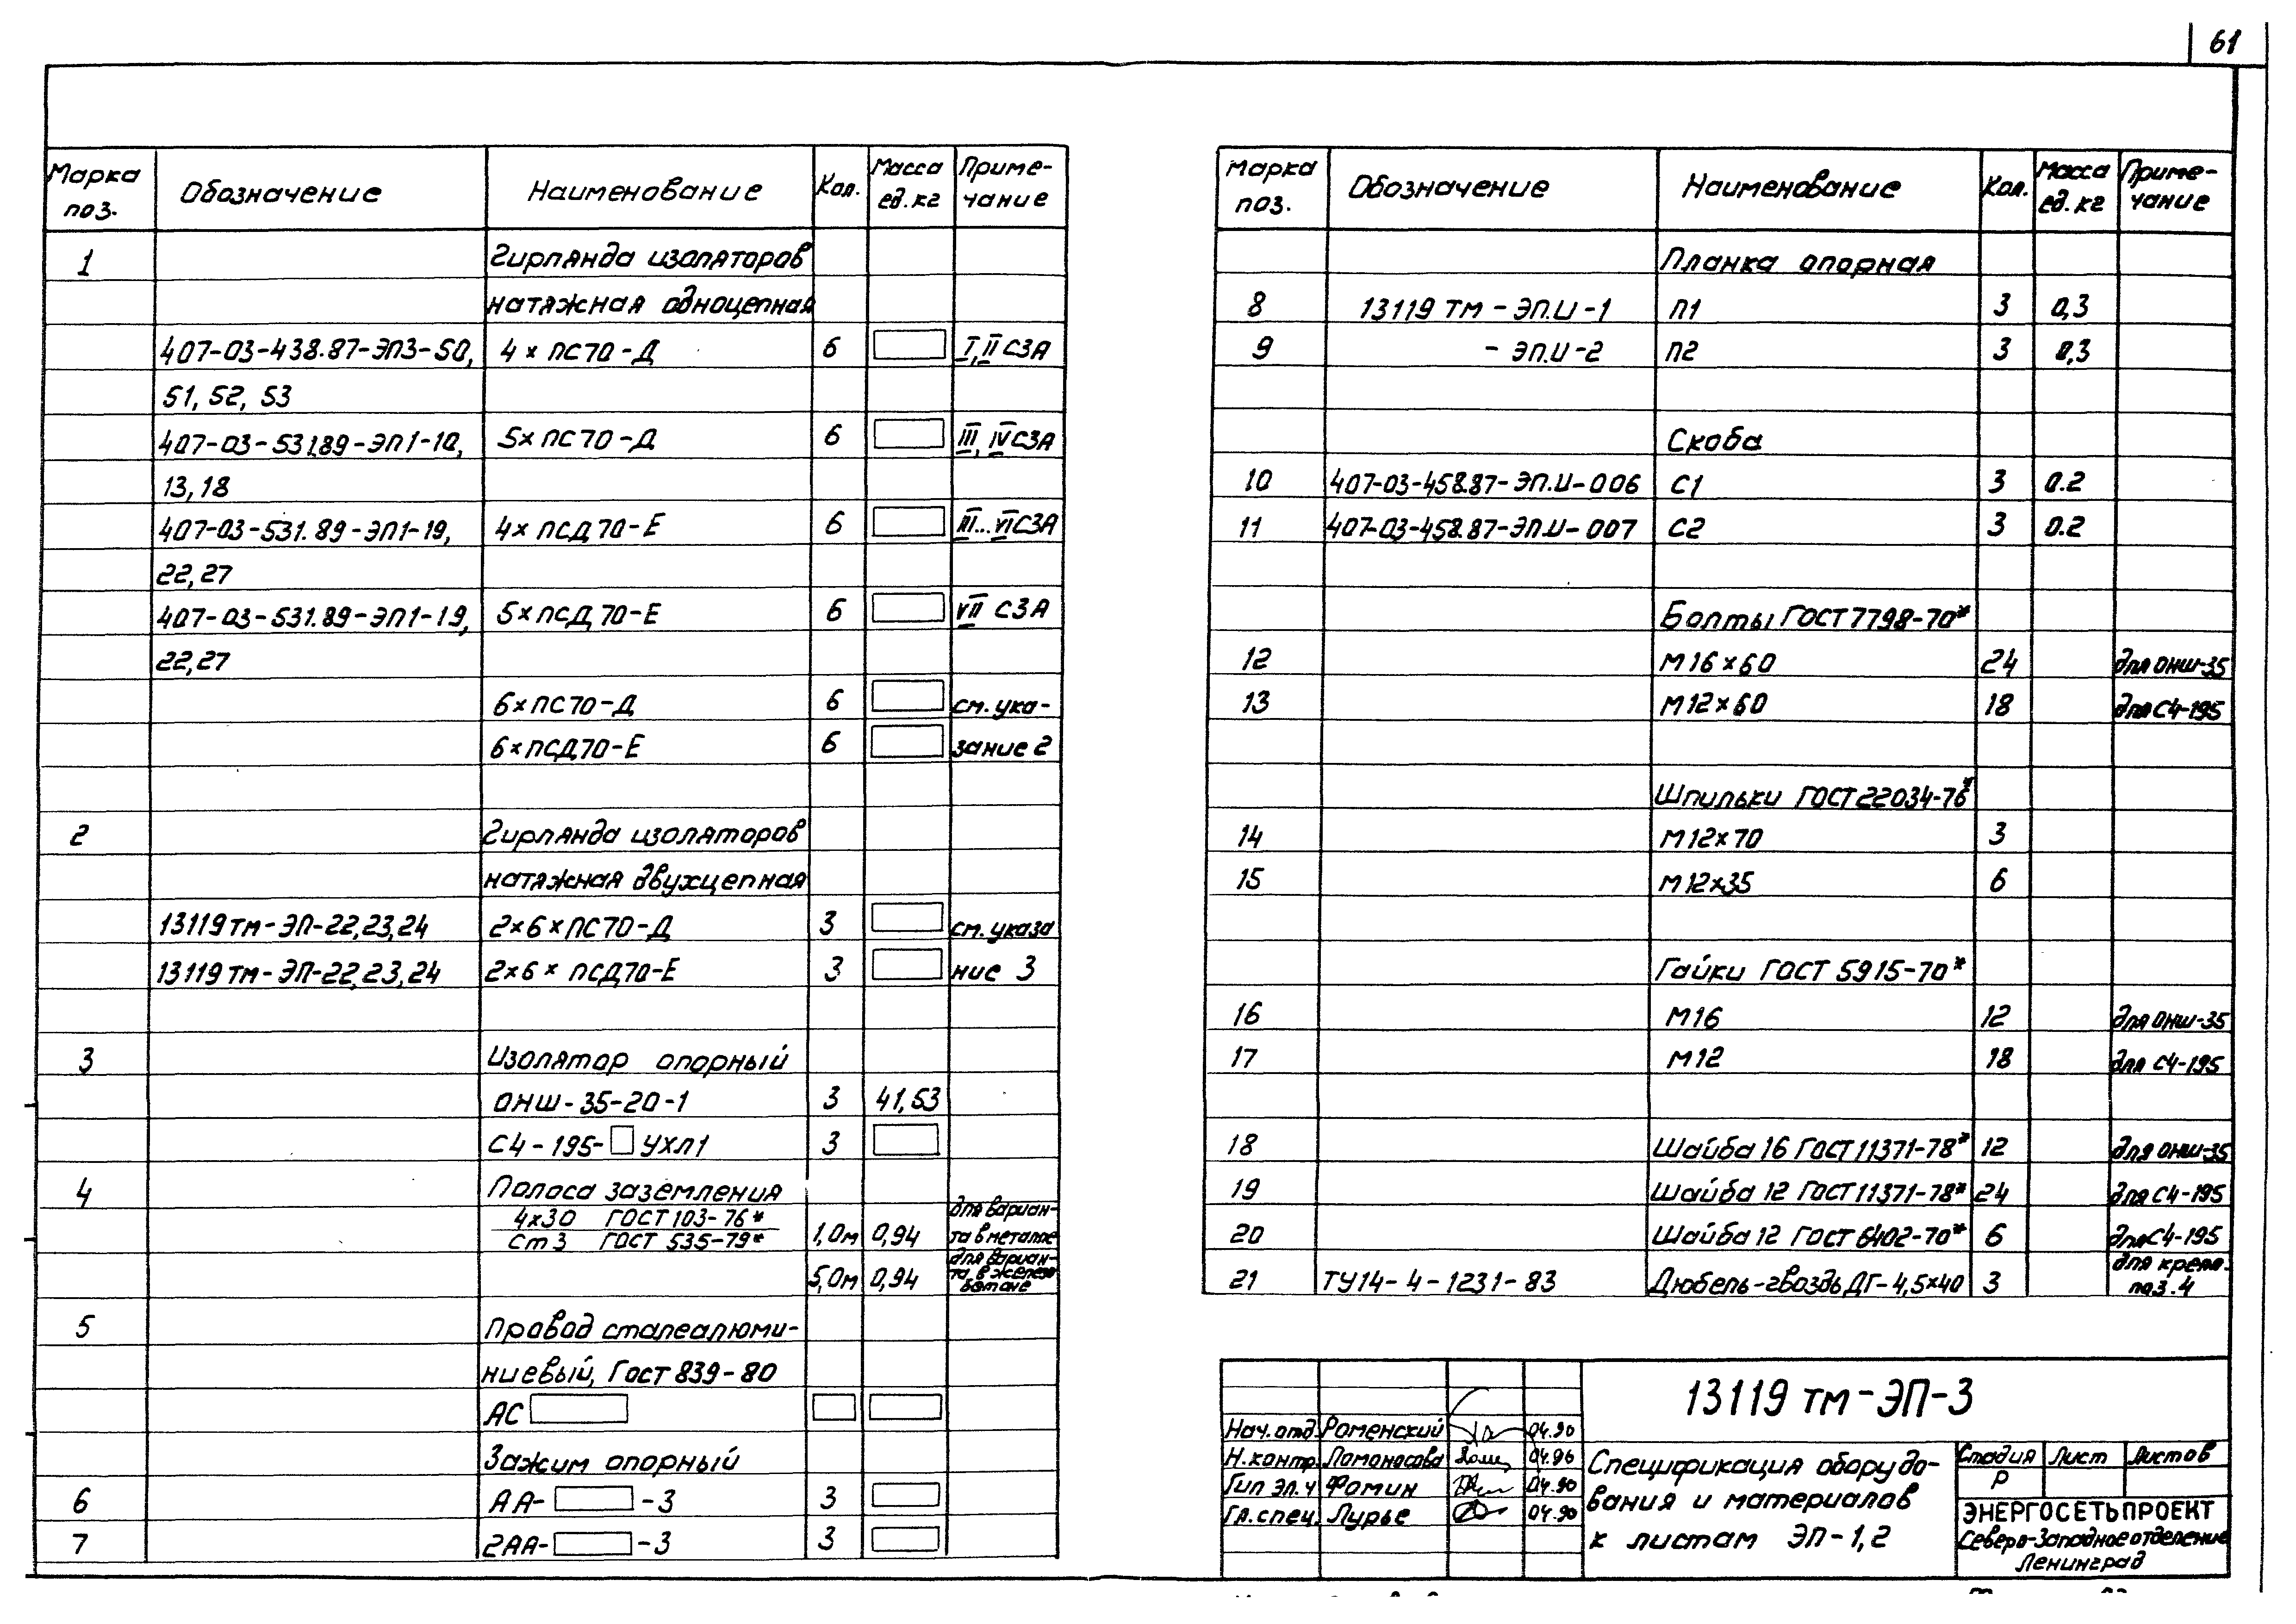 61
Марка поз. Обозначение Наименование Кол. Масса ед. кг Примечание
1 Гирлянда изоляторов
натяжная одноцепная
407-03-438.87-ЭП3-50, 4×ПС70-Д 6 I, II СЗА
51, 52, 53
407-03-531.89-ЭП1-10, 5×ПС70-Д 6 III, IV СЗА
13, 18
407-03-531.89-ЭП1-19, 4×ПСД70-Е 6 III...VI СЗА
22, 27
407-03-531.89-ЭП1-19, 5×ПСД70-Е 6 VII СЗА
22,27
6×ПС70-Д 6 см. ука-
6×ПСД70-Е 6 зание 2
2 Гирлянда изоляторов
натяжная двухцепная
13119тм-ЭП-22,23,24 2×6×ПС70-Д 3 см. указа
13119тм-ЭП-22,23,24 2×6×ПСД70-Е 3 ние 3
3 Изолятор опорный
ОНШ-35-20-1 3 41,53
С4-195-□ УХЛ1 3
4 Полоса заземления
4×30 ГОСТ 103-76* для вариан-
Ст3 ГОСТ 535-79* 1,0м 0,94 та в металле
5,0м 0,94 для вариан-
та в железо
бетоне
5 Провод сталеалюми-
ниевый, ГОСТ 839-80
АС
Зажим опорный
6 АА-□-3 3
7 2АА-□-3 3
Марка поз. Обозначение Наименование Кол. Масса ед. кг Примечание
Планка опорная
8 13119 тм-ЭП.И-1 П1 3 0,3
9 -ЭП.И-2 П2 3 0,3
Скоба
10 407-03-458.87-ЭП.И-006 С1 3 0.2
11 407-03-458.87-ЭП.И-007 С2 3 0.2
Болты ГОСТ 7798-70*
12 М16×60 24 для ОНШ-35
13 М12×60 18 для С4-195
Шпильки ГОСТ 22034-76*
14 М12×70 3
15 М12×35 6
Гайки ГОСТ 5915-70*
16 М16 12 для ОНШ-35
17 М12 18 для С4-195
18 Шайба 16 ГОСТ 11371-78* 12 для ОНШ-35
19 Шайба 12 ГОСТ 11371-78* 24 для С4-195
20 Шайба 12 ГОСТ 6402-70* 6 для С4-195
21 ТУ14-4-1231-83 Дюбель-гвоздь ДГ-4,5×40 3 для креп.
поз. 4
13119 тм-ЭП-3
Нач. отд. Роменский 04.90
Н. контр. Ломоносова 04.90
Гип эл. ч Фомин 04.90
Гл. спец. Лурье 04.90
Спецификация оборудо-
вания и материалов
к листам ЭП-1,2
Стадия Лист Листов
Р
ЭНЕРГОСЕТЬПРОЕКТ
Северо-Западное отделение
Ленинград